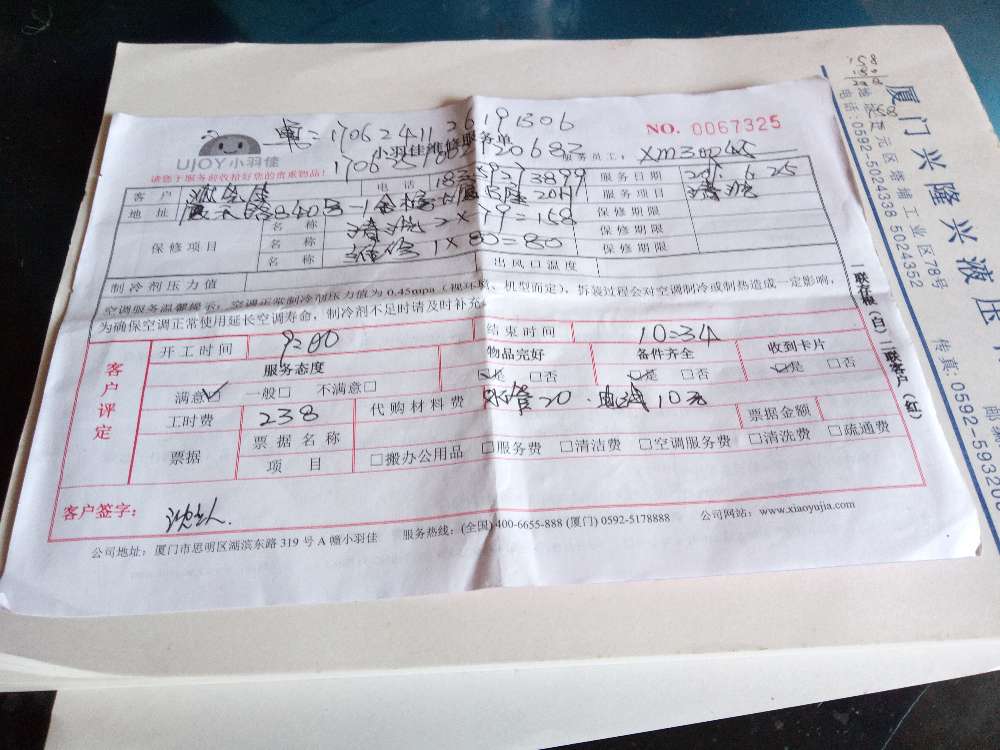 UJOY小羽佳
小羽佳维修服务单
NO. 0067325
请您于服务前收拾好您的贵重物品!
服务员工:
客户
电话
服务日期
地址
服务项目 清洗
保修项目
名称 清洗 2×79=158 保修期限
名称 维修 1×80=80 保修期限
名称 保修期限
制冷剂压力值
出风口温度
空调服务温馨提示:空调正常制冷剂压力值为0.45mpa(视环境、机型而定),拆装过程会对空调制冷或制热造成一定影响,
为确保空调正常使用延长空调寿命,制冷剂不足时请及时补充。
客户评定
开工时间 9:00 结束时间 10:34
服务态度 物品完好 备件齐全 收到卡片
满意 一般□ 不满意□ □是 □否 □是 □否 □是 □否
工时费 238 代购材料费 水管20. 10元 票据金额
票据 票据名称
项目 □搬办公用品 □服务费 □清洁费 □空调服务费 □清洗费 □疏通费
客户签字:
服务热线:(全国)400-6655-888 (厦门) 0592-5178888 公司网站:www.xiaoyujia.com
公司地址:厦门市思明区湖滨东路319号A幢小羽佳
一联存根(白)二联客户(红)
厦门兴隆兴液压
电话:0592-5024338 5024352
传真:0592-593206